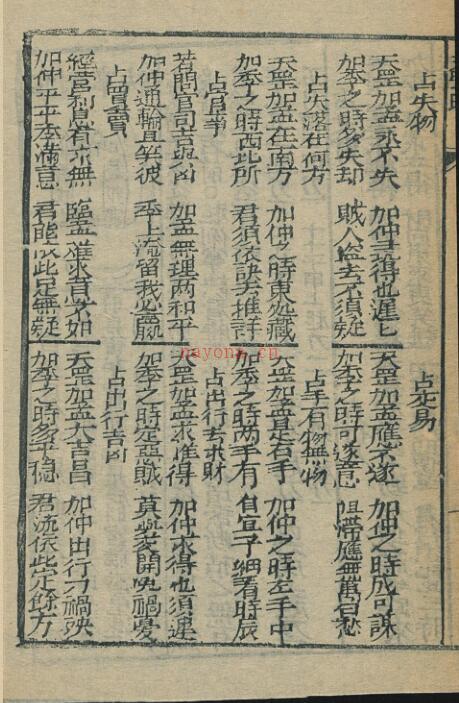 占失物
天罡加孟永不失 加仲尋得也遲遲
加季之時多失却 賊人盜去不須疑
占失落在何方
天罡加孟在南方 加仲之時東処藏
加季之時西北所 君須依訣去推詳
占官事
若問官司吉與凶 加孟無理両和平
加仲通輸且笑彼 季上淹留我必贏
占買賣
經營利息有和無 臨孟進求意不如
加仲平平季滿意 君能依此定無疑
占交易
天罡加孟應不遂 加仲之時成可謀
加季之時可遂意 阻滯應無萬百愁
占手有物無物
天罡加孟是右手 加仲之時左手中
加季之時两手有 自宜子細看時辰
占出行去求財
天罡加孟求准得 加仲求得也須遲
加季之時定虧 莫與開 禍憂
占出行吉凶
天罡加孟大吉昌 加仲出行有禍殃
加季之時多平穩 君流依此定餘方
nayona.cn